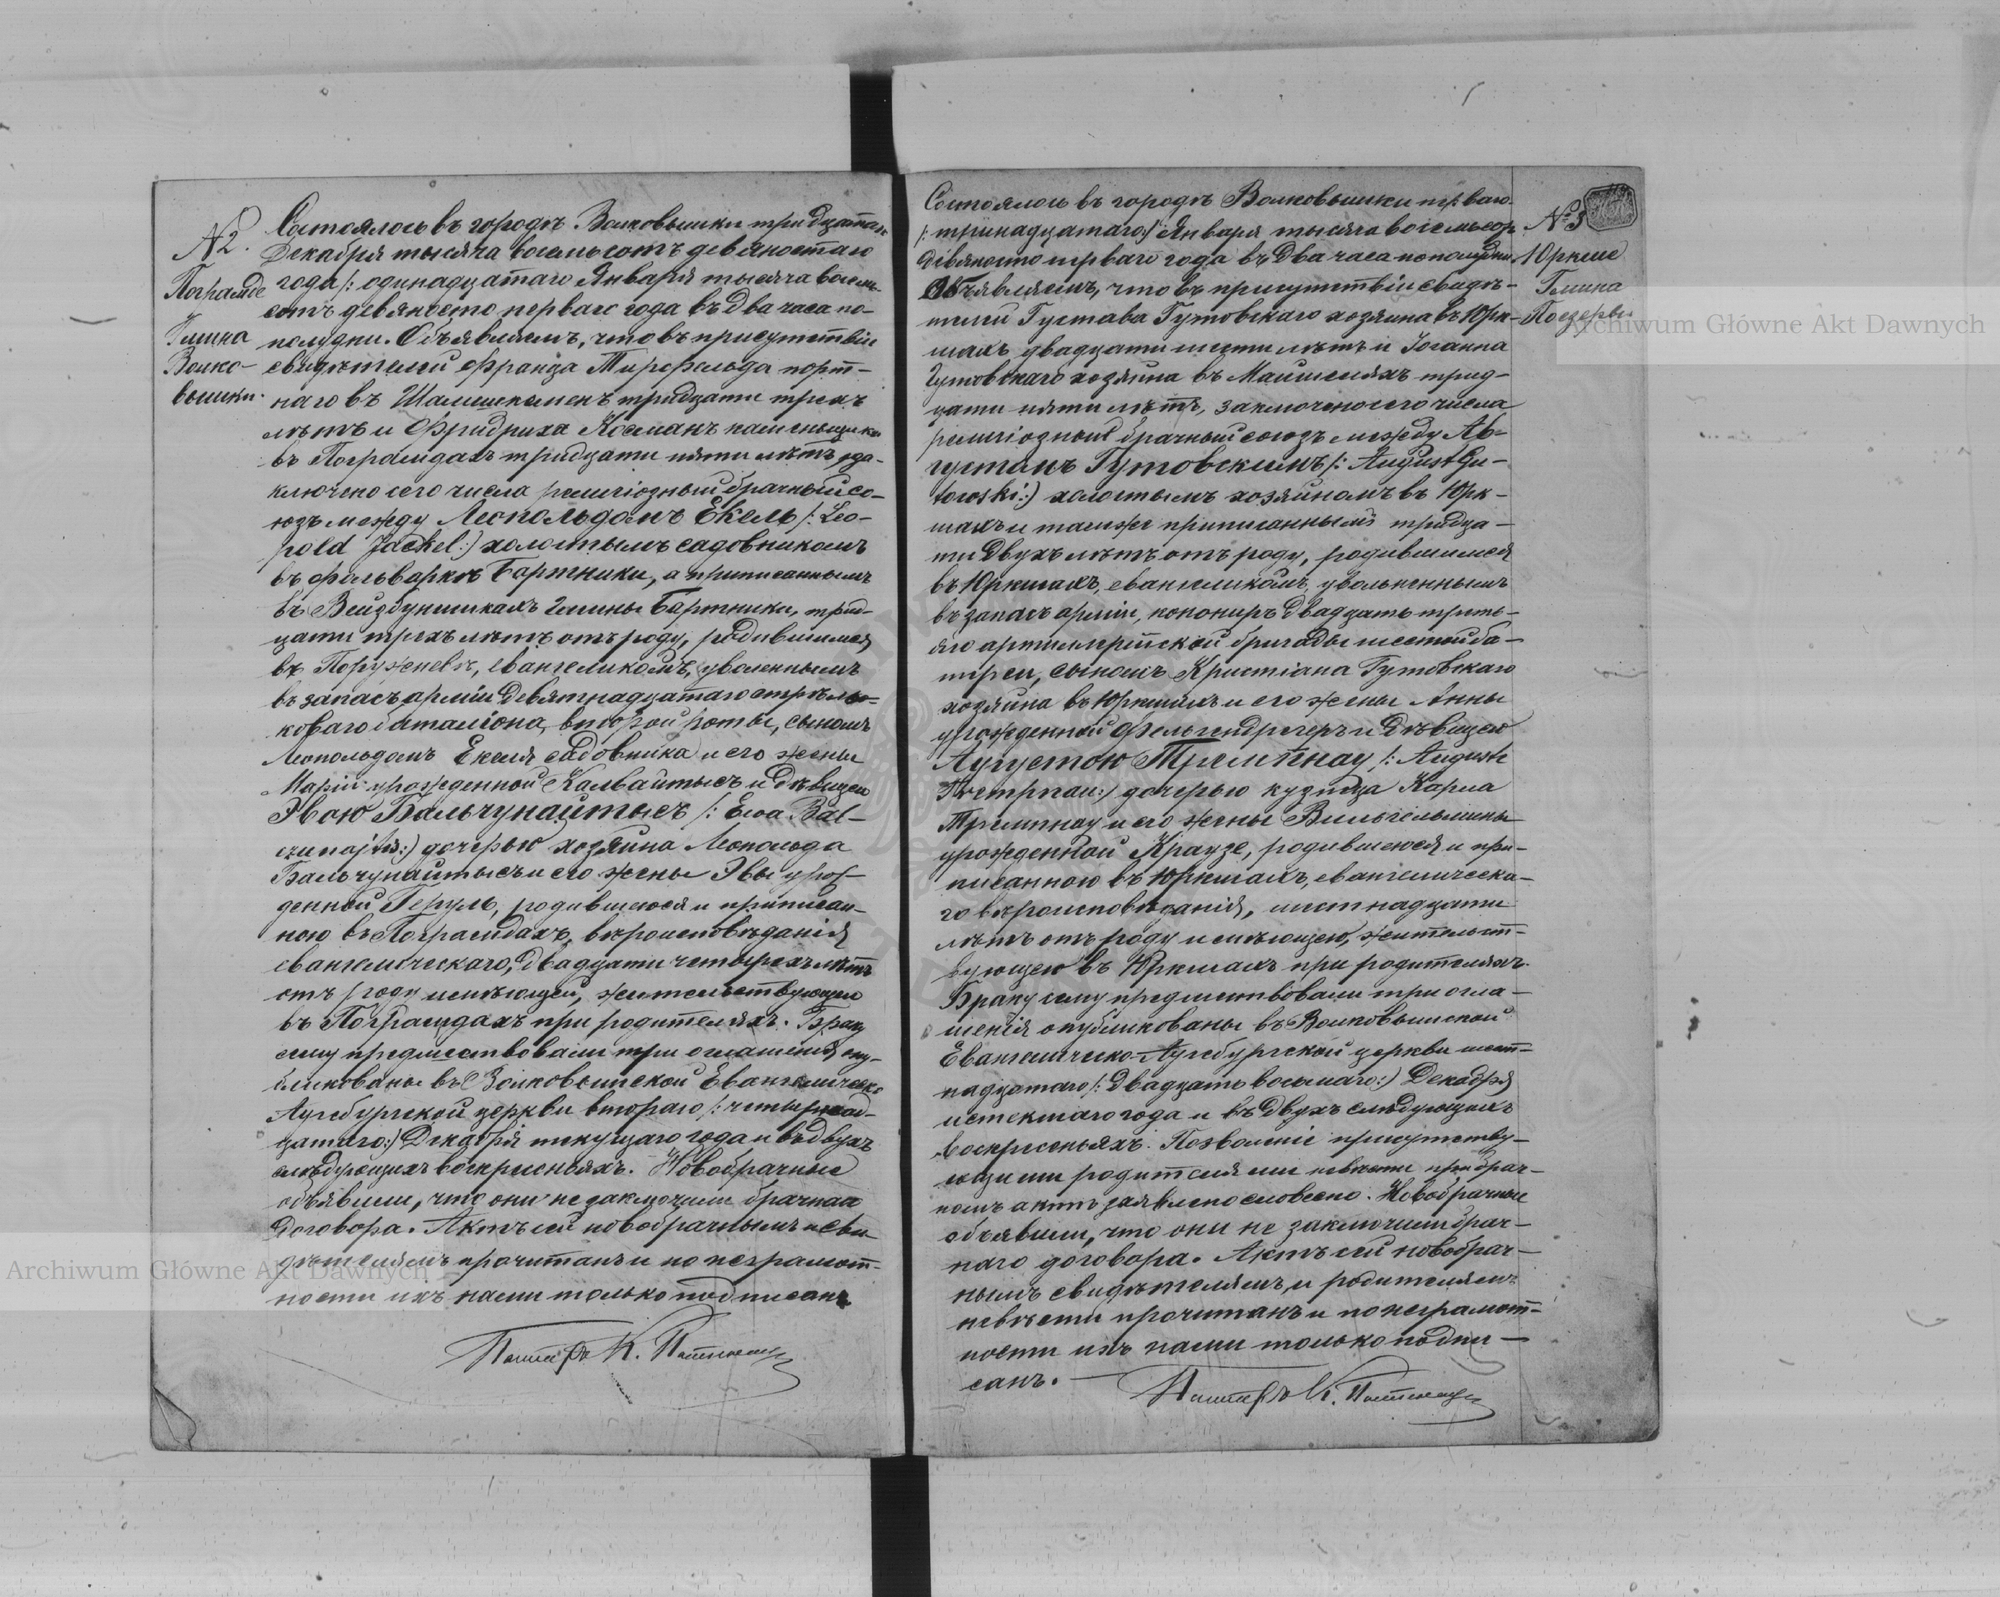 №2.
Пограмде
Гмина
Волко-
вышки.
Состоялось въ городѣ Волковышки тридцатаго
Декабря тысяча восемьсотъ девяностаго
года /: одинадцатаго Января тысяча восемь-
сотъ девяносто перваго года въ два часа по-
полудни. Объявляемъ, что въ присутствіи
свидѣтелей Франца Тирфельда порт-
наго въ тридцати трехъ
лѣтъ и Фридриха Косманъ каменьщика
въ Пограмдахъ тридцати пяти лѣтъ, за-
ключено сего числа религіозный брачный со-
юзъ между Леопольдомъ Екель /: Leo-
pold Jaekel:) холостымъ садовникомъ
въ фольваркѣ Бартники, а приписаннымъ
въ Вейздунишкахъ Гмины Бартники, трид-
цати трехъ лѣтъ отъ роду, родившимся
въ евангеликомъ, уволеннымъ
въ запасъ арміи девятнадцатаго стрѣль-
коваго баталіона, второй роты, сыномъ
Леопольдомъ Екеля садовника и его жены
Маріи урожденной Калвайтысъ и дѣвицею
Эвою Бальчунайтысъ /: Ewa Bal-
czunajtis:) дочерью хозяина Леопольда
Бальчунайтысъ и его жены Эвы урож-
денной Геруль, родившеюся и приписан-
ною въ Пограмдахъ, вѣроисповѣданія
евангелическаго, двадцати четырехъ лѣтъ
отъ роду имѣющей, жительствующею
въ Пограмдахъ при родителяхъ. Браку
сему предшествовали три оглашенія опу-
бликованы въ Волковышской Евангелическо
Аугсбургской церкви втораго /: четырнад-
цатаго:) Декабря текущаго года и въ двухъ
слѣдующихъ воскресеньяхъ. Новобрачные
объявили, что они не заключили брачнаго
договора. Актъ сей новобрачнымъ и сви-
дѣтелямъ прочитанъ и по неграмот-
ности ихъ нами только подписанъ
Пасторъ К.
№3
Юркше
Гмина
Поезеры
Состоялось въ городѣ Волковышки перваго
/: тринадцатаго:/ Января тысяча восемьсотъ
девяносто перваго года въ два часа пополудни.
Объявляемъ, что въ присутствіи свидѣ-
телей Густава Гутовскаго хозяина въ Юрк-
шахъ двадцати шести лѣтъ и Іоганна
Гутовскаго хозяина въ трид-
цати пяти лѣтъ, заключено сего числа
религіозный брачный союзъ между Ав-
густомъ Гутовскимъ /: August Gu-
towski:) холостымъ хозяиномъ въ Юрк-
шахъ и тамже приписаннымъ тридца-
ти двухъ лѣтъ отъ роду, родившимся
въ Юркшахъ, евангеликомъ, увольненнымъ
въ запасъ арміи, конониръ двадцать треть-
яго артилерійской бригады шестой ба-
тареи, сыномъ Христіана Гутовскаго
хозяина въ Юркшахъ и его жены Анны
урожденной Фельгендрегеръ и дѣвицею
Аугустою Тремпнау /: Auguste
Tremnau:) дочерью кузнеца Карла
Тремпнау и его жены Вильгельмины
урожденной Краузе, родившеюся и при-
писанною въ Юркшахъ, евангелическа-
го вѣроисповѣданія, шестнадцати
лѣтъ отъ роду имѣющею, жительст-
вующею въ Юркшахъ при родителяхъ.
Браку сему предшествовали три огла-
шенія опубликованы въ Волковышской
Евангелическо-Аугсбургской церкви шест-
надцатаго /: двадцать восьмаго:) Декабря
истекшаго года и въ двухъ слѣдующихъ
воскресеньяхъ. Позволеніе присутству-
ющими родителями невѣсты при брач-
номъ актѣ заявлено словесно. Новобрачные
объявили, что они не заключили брач-
наго договора. Актъ сей новобрач-
нымъ свидѣтелямъ, и родителямъ
невѣсты прочитанъ и по неграмот-
ности ихъ нами только подпи-
санъ. —
Пасторъ К.
Archiwum Główne Akt Dawnych
Archiwum Główne Akt Dawnych